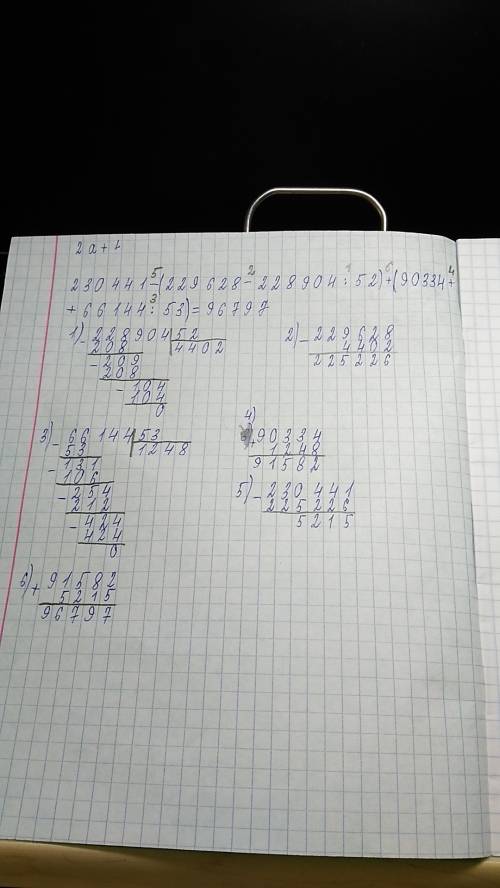 2a + 1
230441 - (229628 - 228904 : 52) + (90334 +
+ 66144 : 53) = 96797
1) - 228904 | 52
208 4402
- 209
208
- 104
104
0
2) - 229628
4402
225226
3) - 66144 | 53
53 1248
- 131
106
- 254
212
- 424
424
0
4) + 90334
1248
91582
5) - 230441
225226
5215
6) + 91582
5215
96797